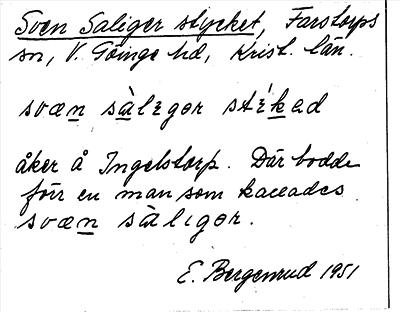 Sven Saliger stycket, Farstorps
sn, V. Göinge hd, Krist. län.
svæn sàlıgər stʹekəd
åker å Ingelstorp. Där bodde
förr en man som kallades
svæn sàlıgər.
E. Bergenrud 1951